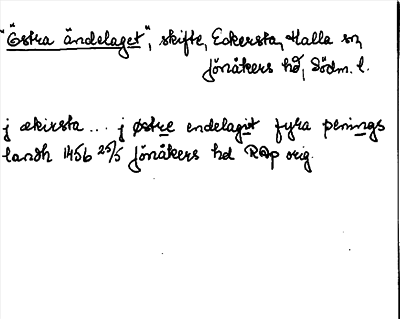 "Östra ändelaget", skifte, Eckersta, Halla sn,
Jönåkers hd, Södm. l.
j ækirsta ... j østre endelagit fyra penings
landh 1456 25/5 Jönåkers hd RAp orig.